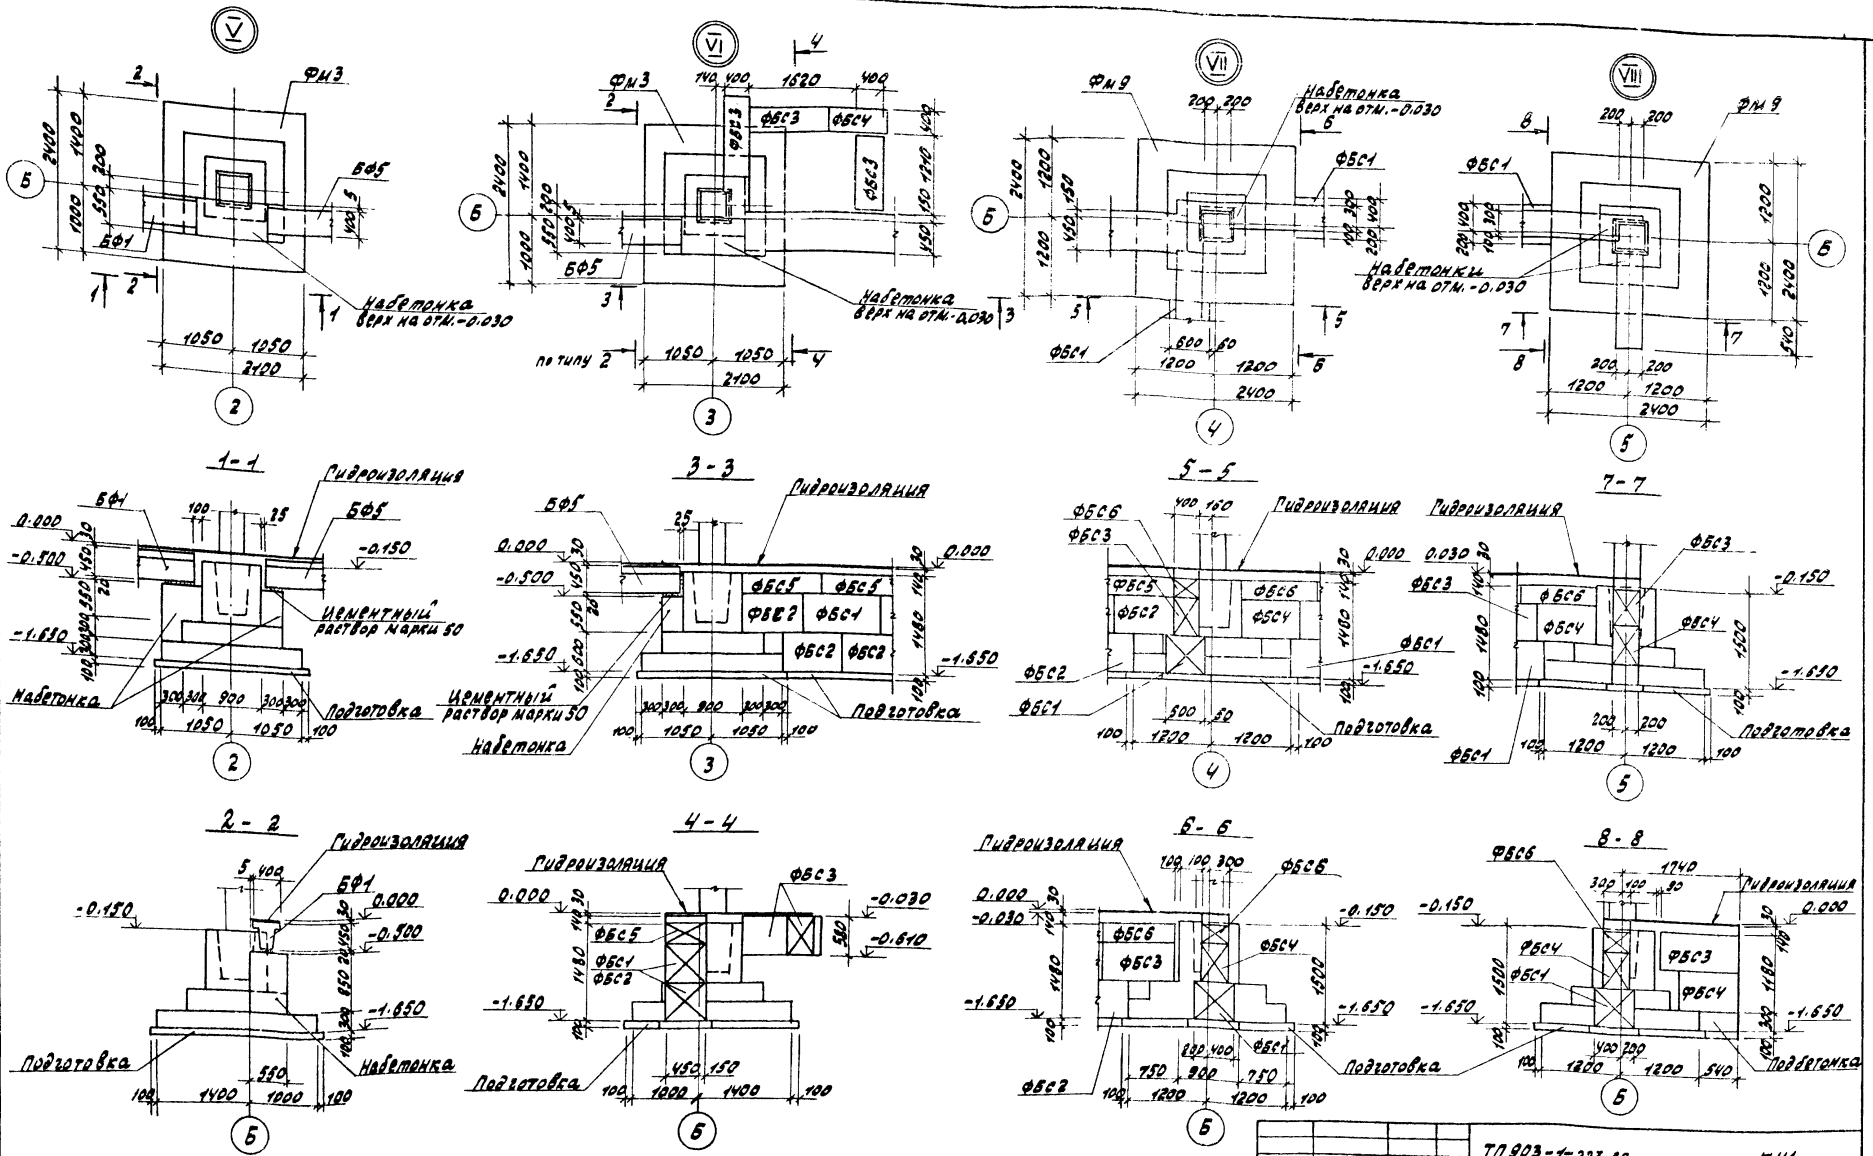 V
2
ФМ3
2400
1400
200
550
1000
Б
БФ5
5
400
БФ1
1
2
1
Набетонка
верх на отм.-0.030
1050
1050
2100
2
VI
4
ФМ3
140
400
1620
400
2
ФБС3
ФБС3
ФБС4
ФБС3
400
1210
150
450
2400
1400
1000
200
550
5
400
Б
БФ5
3
Набетонка
верх на отм.-0.030
3
по типу 2
1050
1050
4
2100
3
VII
ФМ9
200
200
Набетонка
верх на отм.-0.030
6
ФБС1
2400
1200
1200
150
450
Б
300
400
100
200
5
5
ФБС1
600
60
1200
1200
6
2400
4
VIII
8
200
200
ФМ9
ФБС1
400
300
200
100
1200
1200
2400
540
Б
Набетонки
верх на отм.-0.030
7
7
8
200
200
1200
1200
2400
5
1-1
Гидроизоляция
БФ1
100
25
БФ5
0.000
-0.500
-0.150
30
450
20
550
300
300
100
Цементный
раствор марки 50
-1.650
Набетонка
300
300
900
300
300
Подготовка
100
1050
1050
100
2
3-3
Гидроизоляция
БФ5
25
0.000
30
450
-0.500
20
550
600
100
-1.650
ФБС5
ФБС5
ФБС2
ФБС1
ФБС2
ФБС2
30
0.000
140
1480
-1.650
100
Цементный
раствор марки 50
300
300
900
300
300
Подготовка
100
1050
1050
100
Набетонка
3
5-5
400
160
Гидроизоляция
ФБС6
ФБС3
ФБС5
ФБС2
ФБС6
ФБС4
30
0.000
140
1480
ФБС1
-1.650
100
ФБС2
ФБС1
600
60
Подготовка
100
1200
1200
100
4
7-7
Гидроизоляция
ФБС3
0.030
30
140
-0.150
ФБС3
ФБС6
ФБС4
ФБС4
1480
1500
-1.650
100
100
200
200
Подготовка
ФБС1
100
1200
1200
100
5
2-2
Гидроизоляция
5
400
БФ1
-0.150
0.000
30
450
-0.500
20
850
300
-1.650
100
Подготовка
Набетонка
550
100
1400
1000
100
Б
4-4
Гидроизоляция
ФБС3
0.000
30
140
-0.030
ФБС5
580
-0.610
ФБС1
ФБС2
1480
-1.650
100
Подготовка
450
150
100
1000
1400
100
Б
6-6
Гидроизоляция
100
300
ФБС6
0.000
30
-0.030
140
-0.150
ФБС6
ФБС3
ФБС4
1480
1500
-1.650
-1.650
100
100
200
400
ФБС1
Подготовка
ФБС2
750
900
750
100
1200
1200
100
Б
8-8
ФБС6
1740
300
100
Гидроизоляция
-0.150
30
0.000
140
ФБС4
ФБС3
ФБС1
ФБС4
1500
1480
-1.650
300
-1.650
100
100
400
200
Подбетонка
100
1200
1200
540
Б
ТП 903-1-